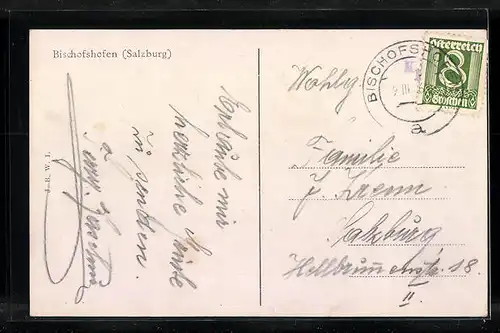 Bischofshofen (Salzburg)
J. B. W. I.
Erlaube mir
herzliche Grüße
zu senden.
BISCHOFSH
a
Österreich
8
Groschen
Wohlg
Familie
J. Krenn
Salzburg
Hellbrunnerstr. 18.
II